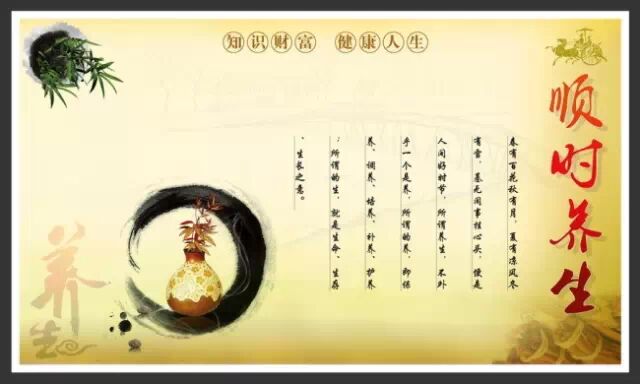 知识财富 健康人生
顺时养生
春有百花秋有月，夏有凉风冬
有雪，无闲事挂心头，便是
人间好时节，所谓养生，不外
乎一个是养，所谓的养，即保
养、调养、培养、补养、护养
；所谓的生，就是生命、生存
、生长之意。
养生